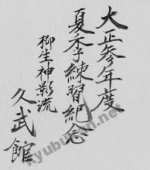 大正参年度
夏季練習紀念
柳生神影流
久武館